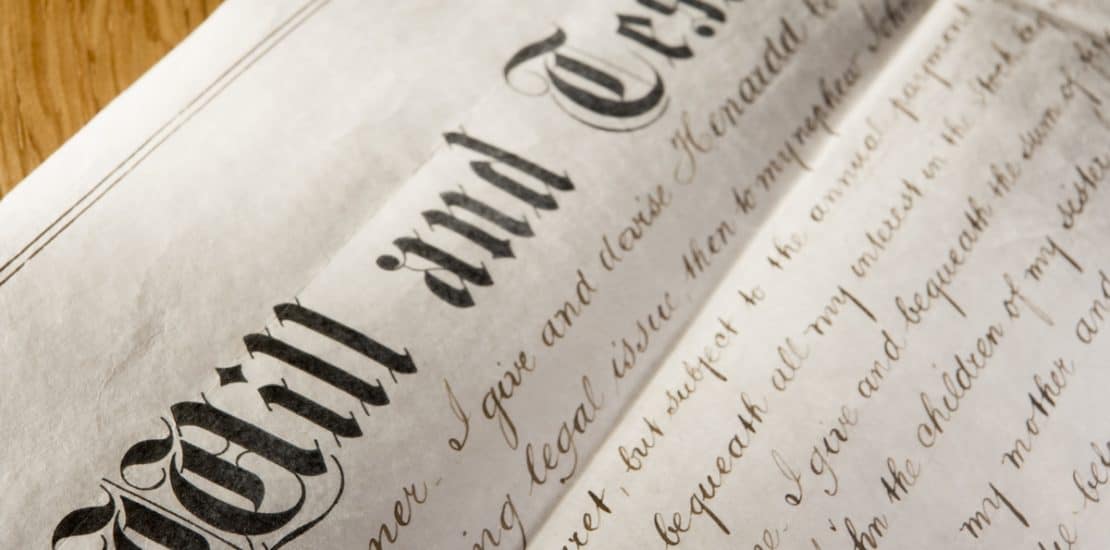 Will and Tes
I give and devise Henardd
ner.
ing legal issue, then to my nephew John
ret, but subject to the annual payment
bequeath all my interest in the stock
I give and bequeath the sum of
hn the children of my sister
my mother and